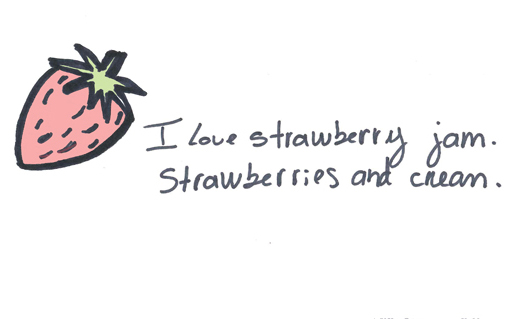 I love strawberry jam.
Strawberries and cream.